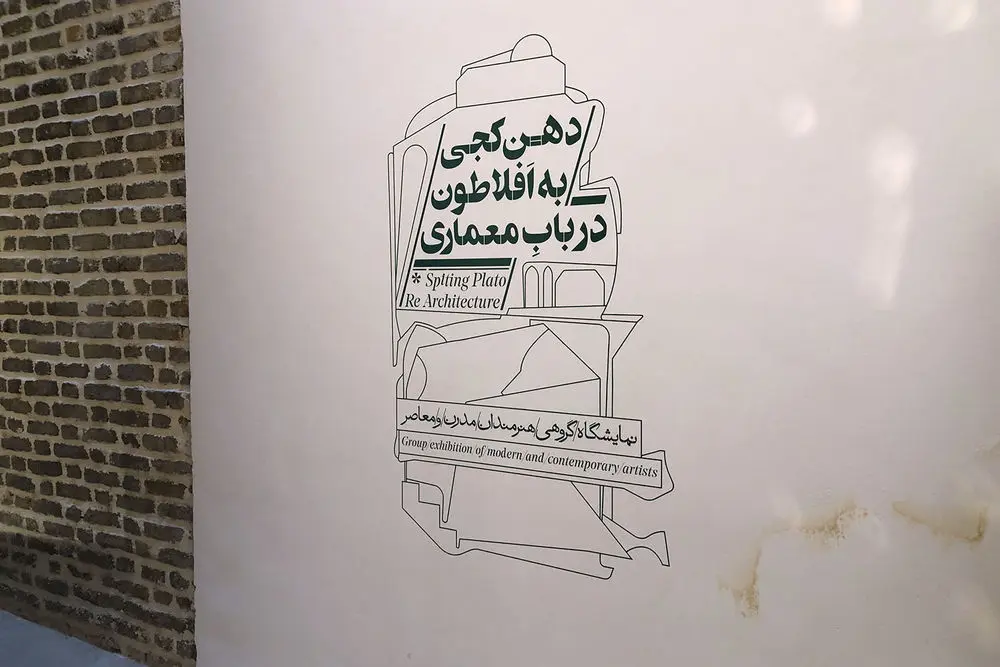 دهن‌کجی
به اَفلاطون
در بابِ معماری
* Spiting Plato
Re Architecture
نمایشگاه/گروهی/هنرمندان/مدرن/و/معاصر
Group/exhibition/of/modern/and/contemporary/artists